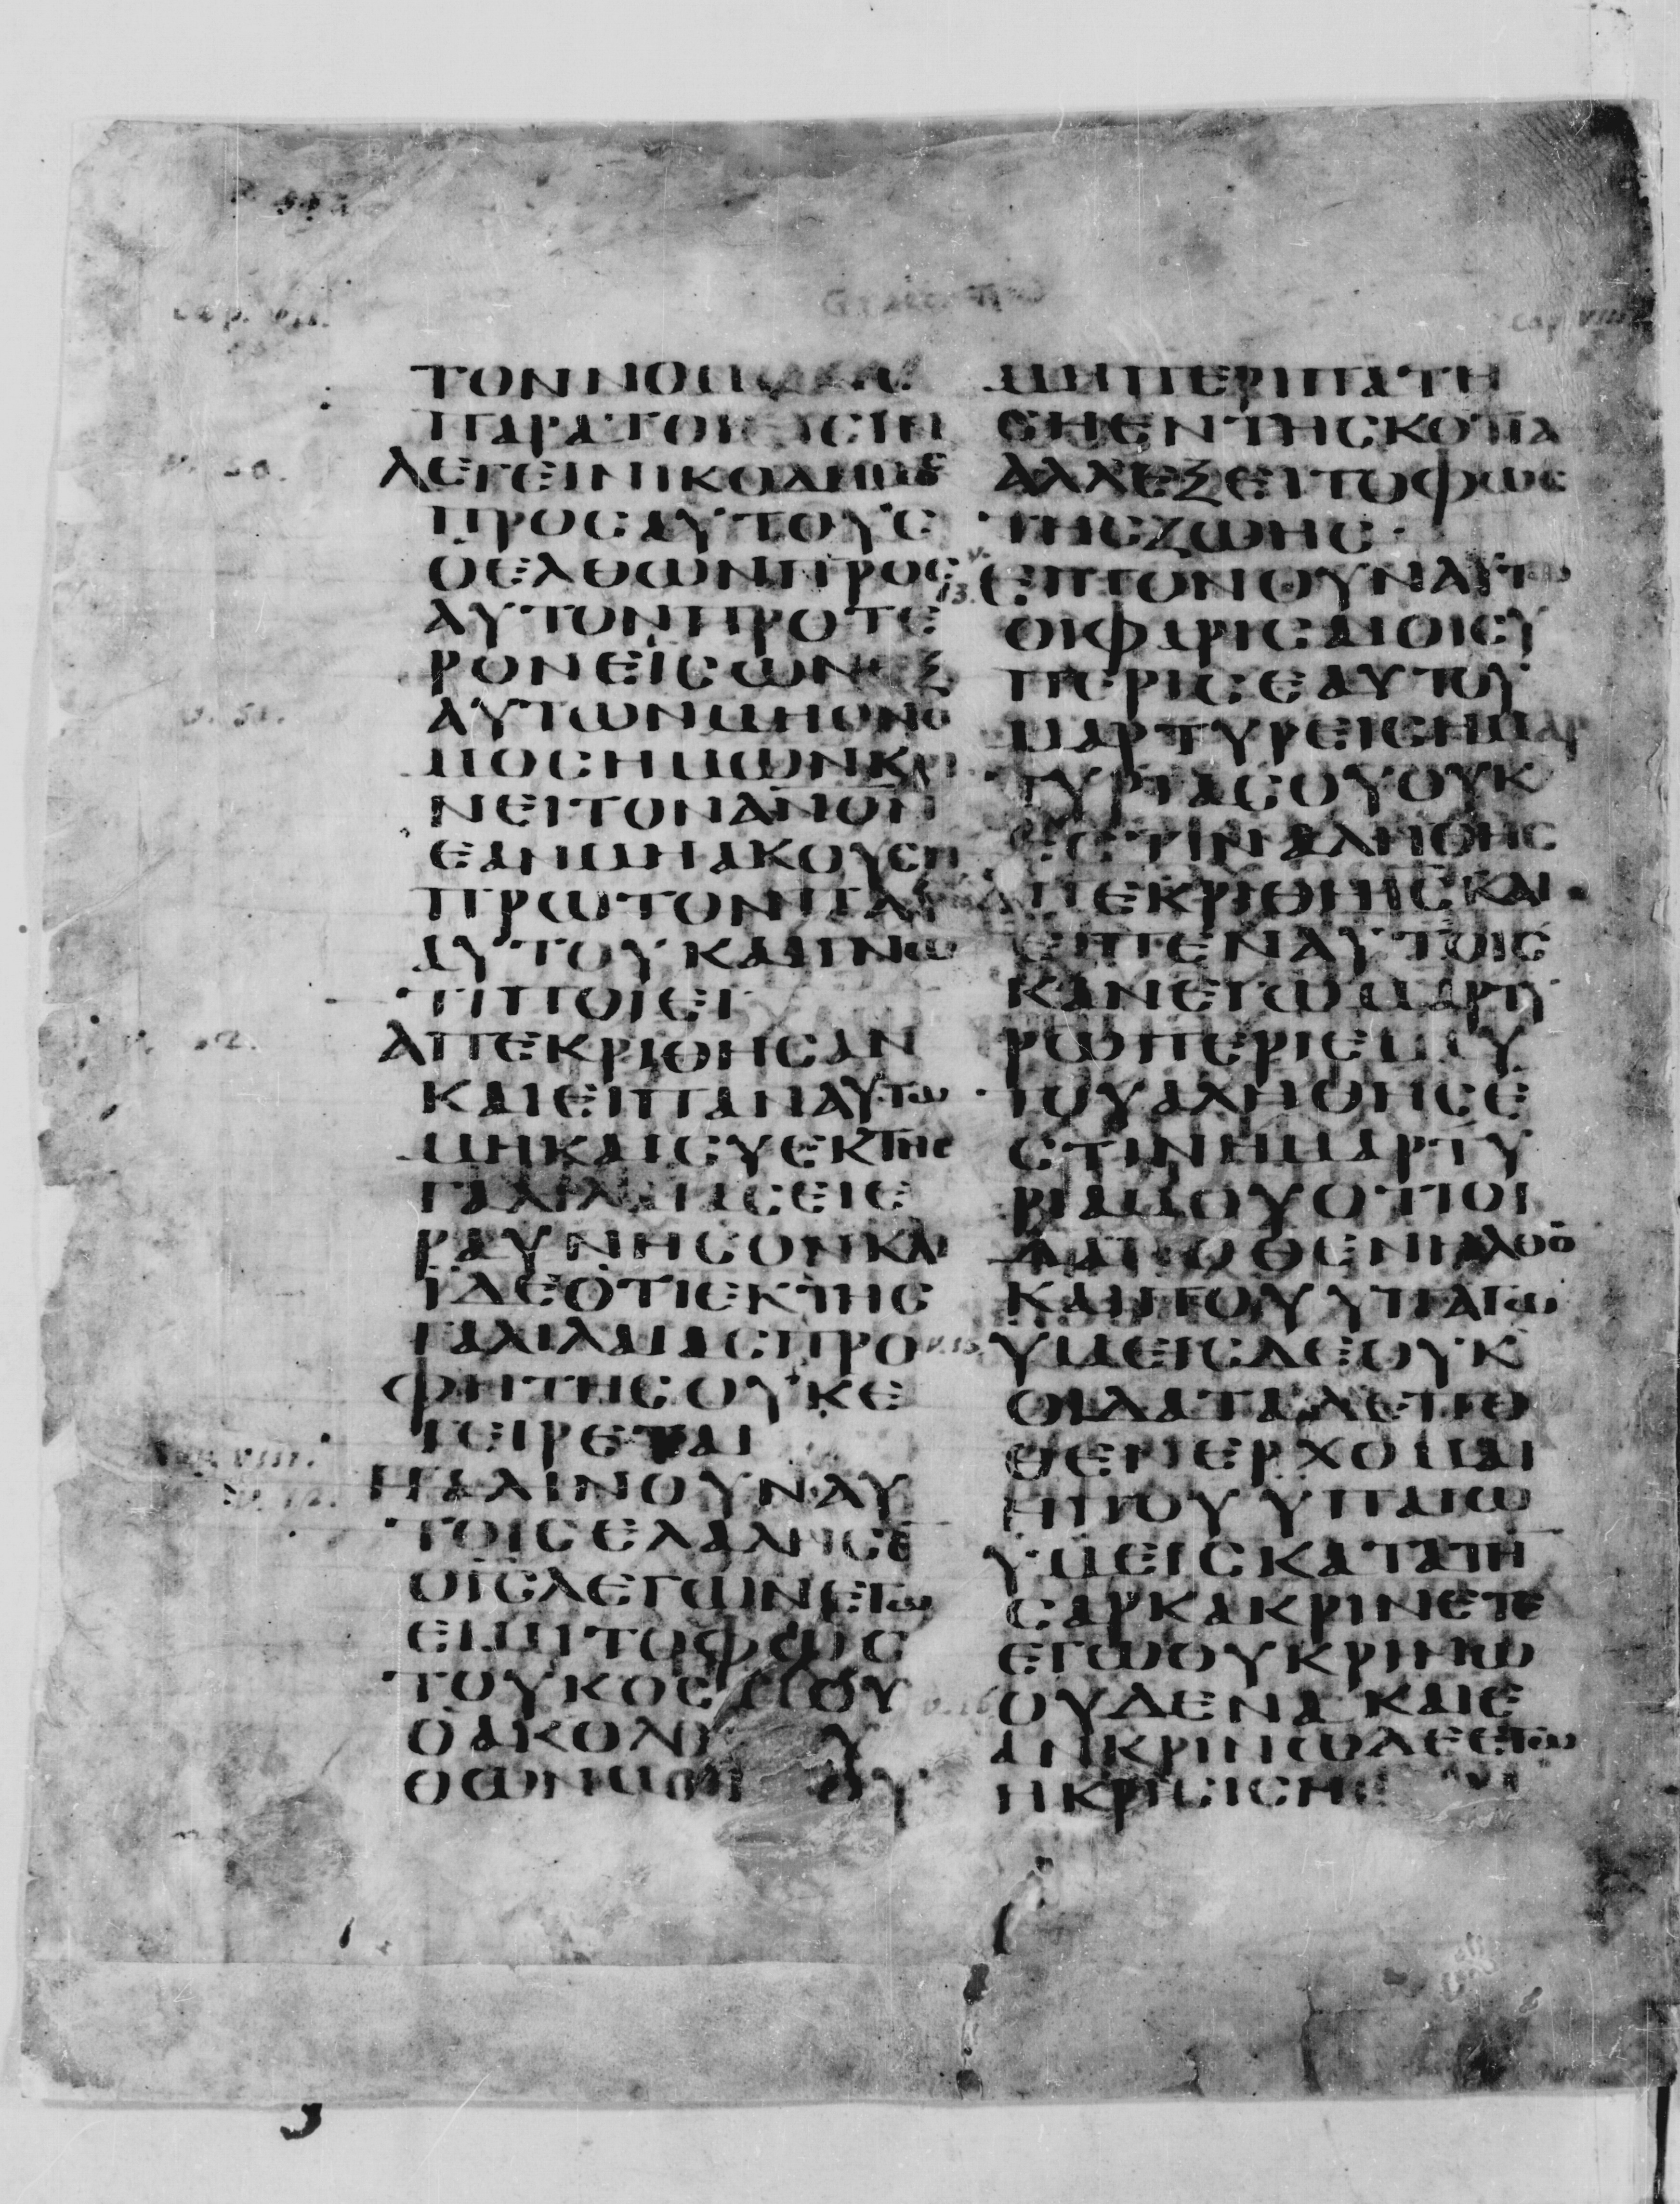 Cap. VII.
Cap VIII
ΤΟΝΝΟΜ
ΠΑΡΑΤΟΙ ΙСΙΝ
v. 50.
ΛΕΓΕΙΝΙΚΟΔΗΜΟС
ΠΡΟСΑΥΤΟΥС
ΟΕΛΘΩΝΠΡΟС
ΑΥΤΟΝΠΡΟΤΕ
ΡΟΝΕΙСΩΝΕΞ
v. 51.
ΑΥΤΩΝΜΗΟΝΟ
ΜΟСΗΜΩΝΚΡΙ
ΝΕΙΤΟΝΑΝΟΝ
ΕΑΝΜΗΑΚΟΥСΗ
ΠΡΩΤΟΝΠΑΡ
ΑΥΤΟΥΚΑΙΓΝΩ
ΤΙΠΟΙΕΙ
ΑΠΕΚΡΙΘΗСΑΝ
ΚΑΙΕΙΠΑΝΑΥΤΩ
ΜΗΚΑΙСΥΕΚΤΗС
ΓΑΛΙΛΑΙΑСΕΙΕ
ΡΑΥΝΗСΟΝΚΑΙ
ΙΔΕΟΤΙΕΚΤΗС
ΓΑΛΙΛΑΙΑСΠΡΟ
ΦΗΤΗСΟΥΚΕ
ΓΕΙΡΕΤΑΙ
Cap. VIII.
v. 12.
ΠΑΛΙΝΟΥΝΑΥ
ΤΟΙСΕΛΑΛΗСΕ
ΟΙСΛΕΓΩΝΕΓΩ
ΕΙΜΙΤΟΦΩС
ΤΟΥΚΟСΜΟΥ
ΟΑΚΟΛΟ Υ
ΘΩΝΜΟΙ ΟΥ
ΜΗΠΕΡΙΠΑΤΗ
СΗΕΝΤΗСΚΟΤΙΑ
ΑΛΛΕΞΕΙΤΟΦΩС
ΤΗСΖΩΗС
v. 13.
ΕΙΠΟΝΟΥΝΑΥΤΩ
ΟΙΦΑΡΙСΑΙΟΙСΥ
ΠΕΡΙСΕΑΥΤΟΥ
ΜΑΡΤΥΡΕΙСΗΜΑΡ
ΤΥΡΙΑСΟΥΟΥΚ
ΕСΤΙΝΑΛΗΘΗС
ΑΠΕΚΡΙΘΗΙСΚΑΙ
ΕΙΠΕΝΑΥΤΟΙС
ΚΑΝΕΓΩΜΑΡΤΥ
ΡΩΠΕΡΙΕΜΑΥ
ΤΟΥΑΛΗΘΗСΕ
СΤΙΝΗΜΑΡΤΥ
ΡΙΑΜΟΥΟΤΙΟΙ
ΔΑΠΟΘΕΝΗΛΘΟ
ΚΑΙΠΟΥΥΠΑΓΩ
ΥΜΕΙСΔΕΟΥΚ
ΟΙΔΑΤΑΙΛΕΠΟ
ΘΕΝΕΡΧΟΜΑΙ
ΗΠΟΥΥΠΑΓΩ
v. 15.
ΥΜΕΙСΚΑΤΑΤΗ
СΑΡΚΑΚΡΙΝΕΤΕ
ΕΓΩΟΥΚΡΙΝΩ
v. 16
ΟΥΔΕΝΑΚΑΙΕ
ΑΝΚΡΙΝΩΔΕΕΓΩ
ΗΚΡΙСΙСΗ